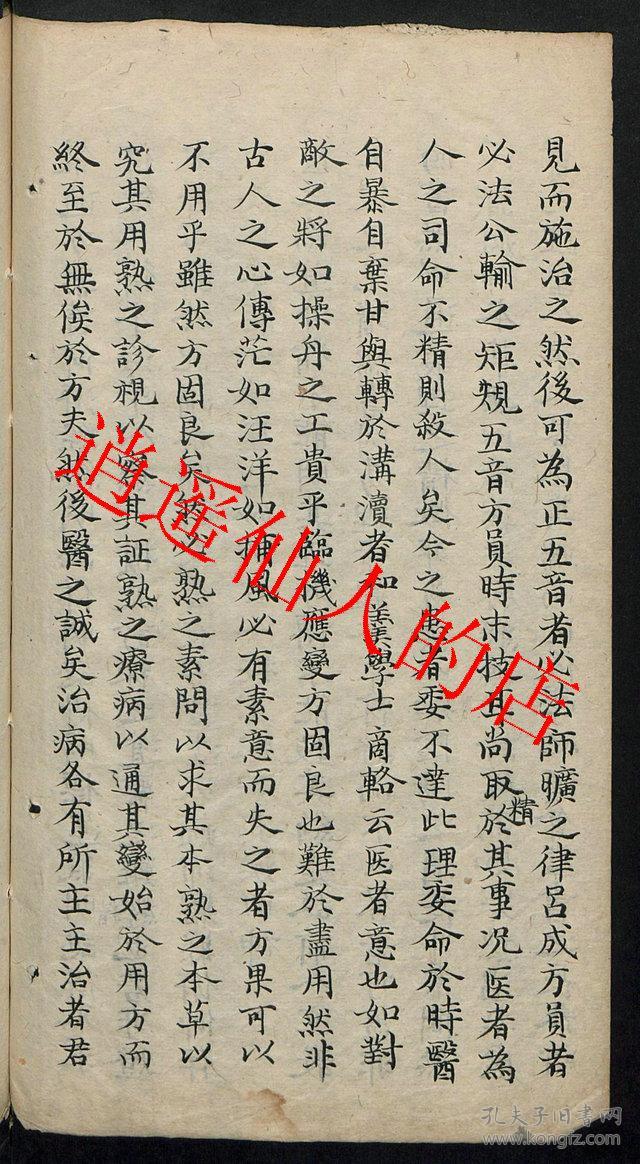 見而施治之然後可為正五音者必法師曠之律呂成方員者
必法公輸之矩規五音方員時末技耳尚取精於其事况医者為
人之司命不精則殺人矣今之患者委不達此理委命於時醫
自暴自棄甘與轉於溝瀆者和羙學士商輅云医者意也如對
敵之將如操舟之工貴乎臨機應變方固良也難於盡用然非
古人之心傳茫如汪洋如捕風必有素意而失之者方果可以
不用乎雖然方固良矣然必熟之素問以求其本熟之本草以
究其用熟之診視以察其証熟之療病以通其變始於用方而
終至於無俟於方夫然後醫之誠矣治病各有所主主治者君
逍遥仙人的店
孔夫子旧书网
www.kongfz.com